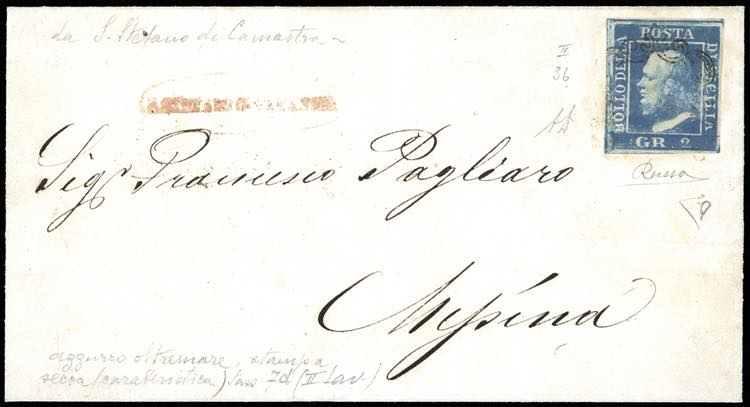 da S. Stefano di Camastra
II
36
AD
BOLLO DELLA
POSTA
DI SICILIA
GR 2
Sigr Francesco Pagliaro
Russo
Messina
azzurro oltremare, stampa
secca (caratteristica) Sas 7d (II tav.)